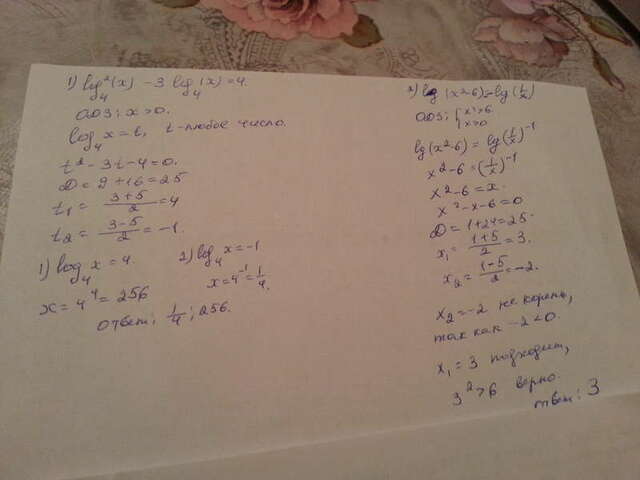 1) log₄²(x) - 3 log₄(x) = 4.
ОДЗ: x > 0.
log₄ x = t, t - любое число.
t² - 3t - 4 = 0.
D = 9 + 16 = 25
t₁ = (3+5)/2 = 4
t₂ = (3-5)/2 = -1.
1) log₄ x = 4
x = 4⁴ = 256
2) log₄ x = -1
x = 4⁻¹ = 1/4.
Ответ: 1/4; 256.
2) lg(x²-6) = -lg(1/x)
ОДЗ: { x² > 6 x > 0
lg(x²-6) = lg(1/x)⁻¹
x²-6 = (1/x)⁻¹
x²-6 = x
x²-x-6 = 0
D = 1+24 = 25
x₁ = (1+5)/2 = 3.
x₂ = (1-5)/2 = -2.
x₂ = -2 не корень,
так как -2 < 0.
x₁ = 3 подходит,
3² > 6 верно.
Ответ: 3